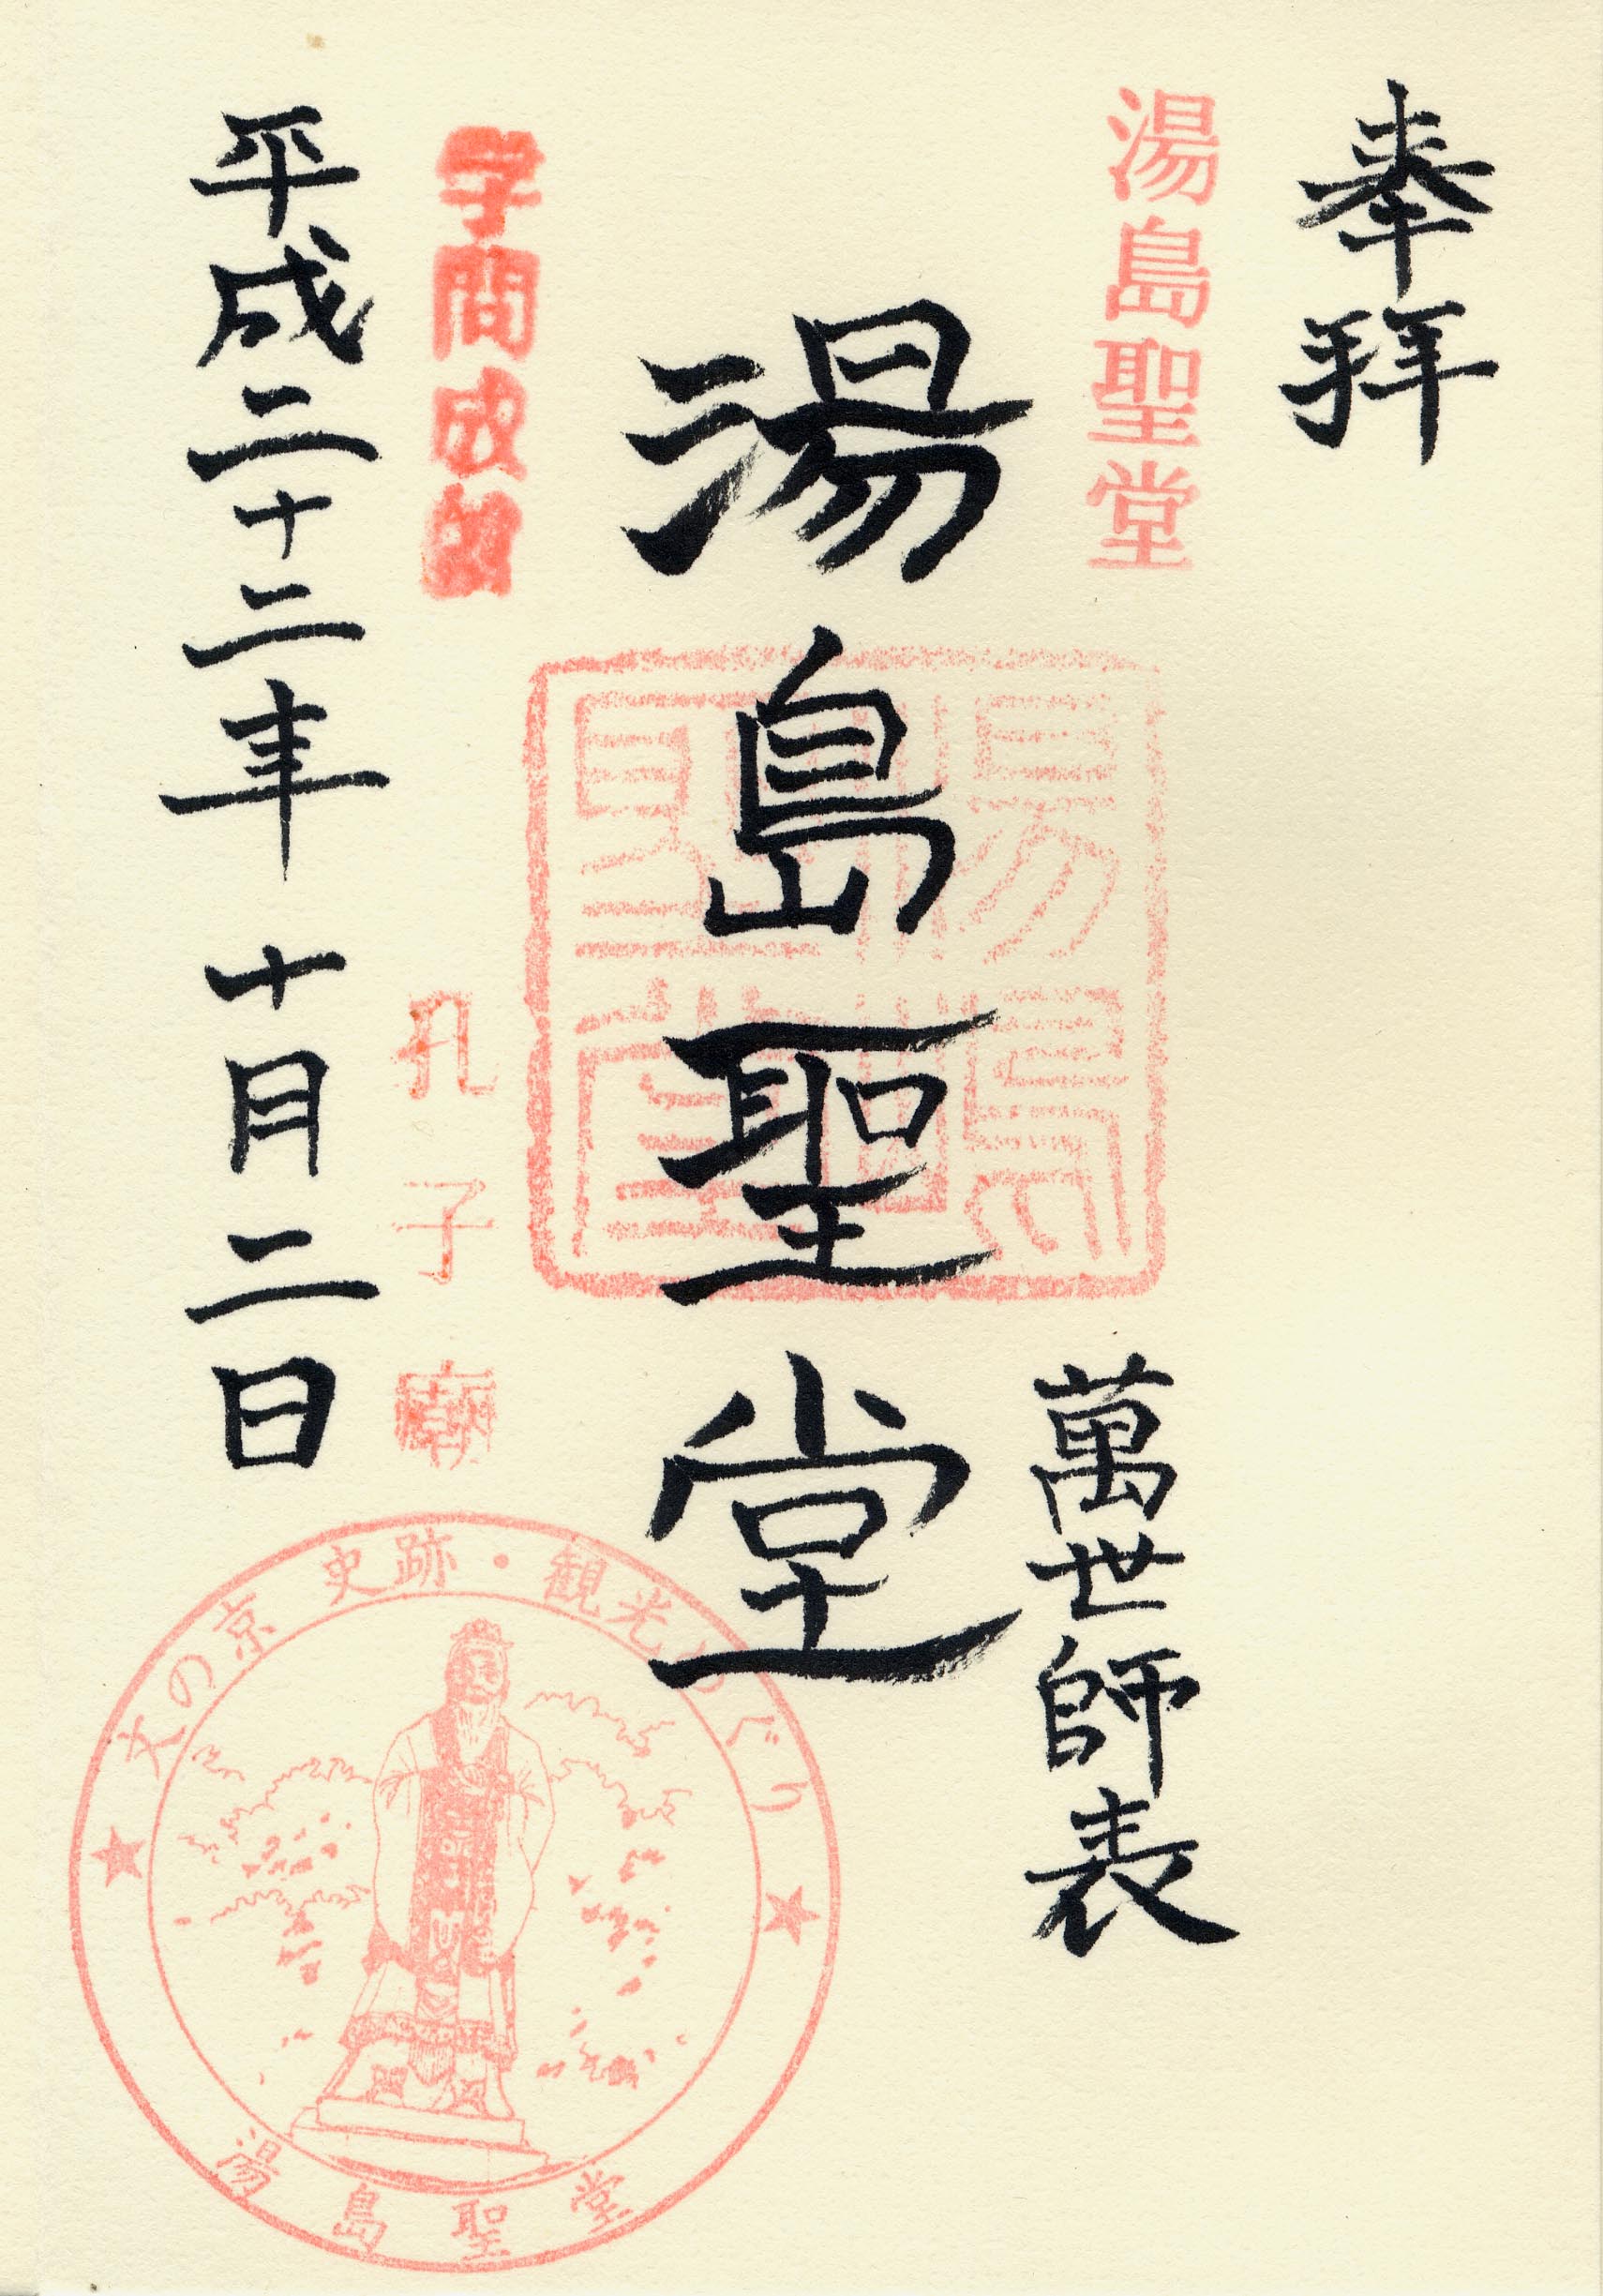 奉拝
湯島聖堂
萬世師表
湯島聖堂
湯島聖堂
学問成就
孔子廟
平成二十二年 十月二日
★文の京 史跡・観光めぐり★
湯島聖堂